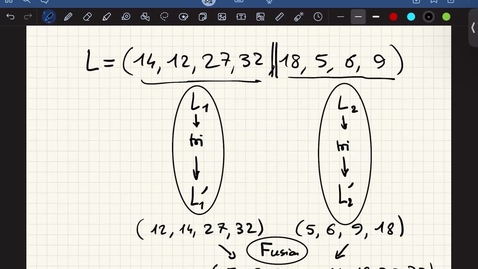 L = (14, 12, 27, 32 || 18, 5, 6, 9)
L₁ L₂
tri tri
L₁' L₂'
(12, 14, 27, 32) (5, 6, 9, 18)
Fusion